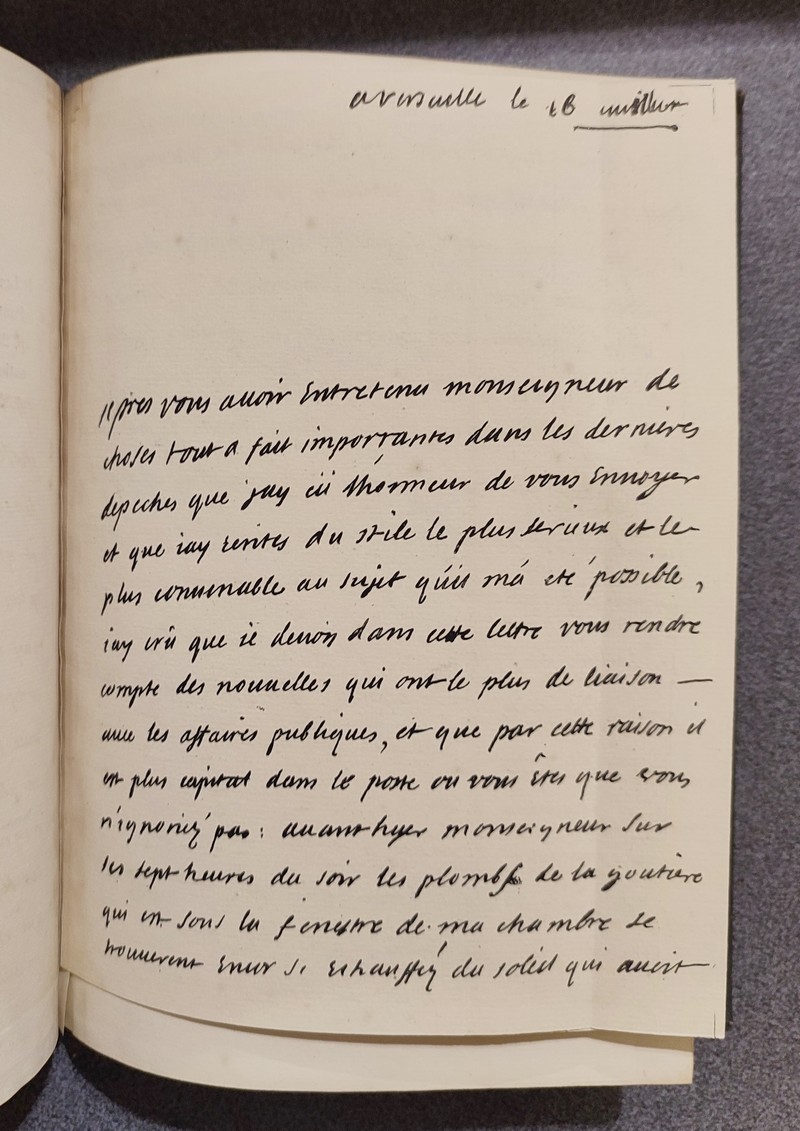 a versaille le 18 juillet
Apres vous avoir Entretenu monseigneur de
choses tout a fait importantes dans les dernieres
depeches que j'ay eü l'honneur de vous Envoyer
et que iay ecrites du stile le plus serieux et le
plus convenable au sujet qu'il m'a eté possible,
iay crû que ie devois dans cette lettre vous rendre
compte des nouvelles qui ont le plus de liaison —
avec les affaires publiques, et que par cette raison il
est plus capital dans le poste ou vous Êtes que vous
n'ignoriez pas : avant hyer monseigneur sur
les sept heures du soir les plombs de la goutiere
qui est sous la fenestre de ma chambre se
trouverent Encor si Echauffez du soleil qui avoit